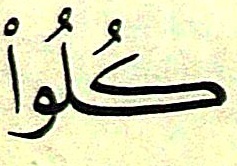 كُلُوا۟